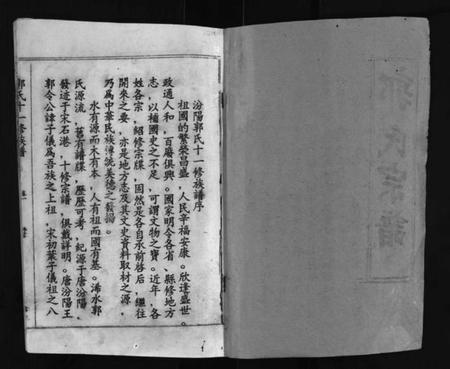 汾陽郭氏十一修族譜序
祖國的繁榮昌盛，人民幸福安康。欣逢盛世。
政通人和，百廢俱興。國家明令各省、縣修地方
志，以補國史之不足，可謂文物之寶。近年，各
姓各宗，紹修宗牒，固然是各自承前啓后，繼往
開來之要，亦是地方志及其文史資料取材之源，
乃爲中華民族傳統美德之發揚。
水有源而木有本，人有祖而國有基。浠水郭
氏源流，舊有譜牒，歷歷可考，紀源于唐汾陽，
發迹于宋石港，十修宗譜，俱載詳明。唐汾陽王
郭令公諱子儀爲吾族之上祖，宋初葉子儀祖之八
郭氏十一修族譜
卷
郭氏宗譜